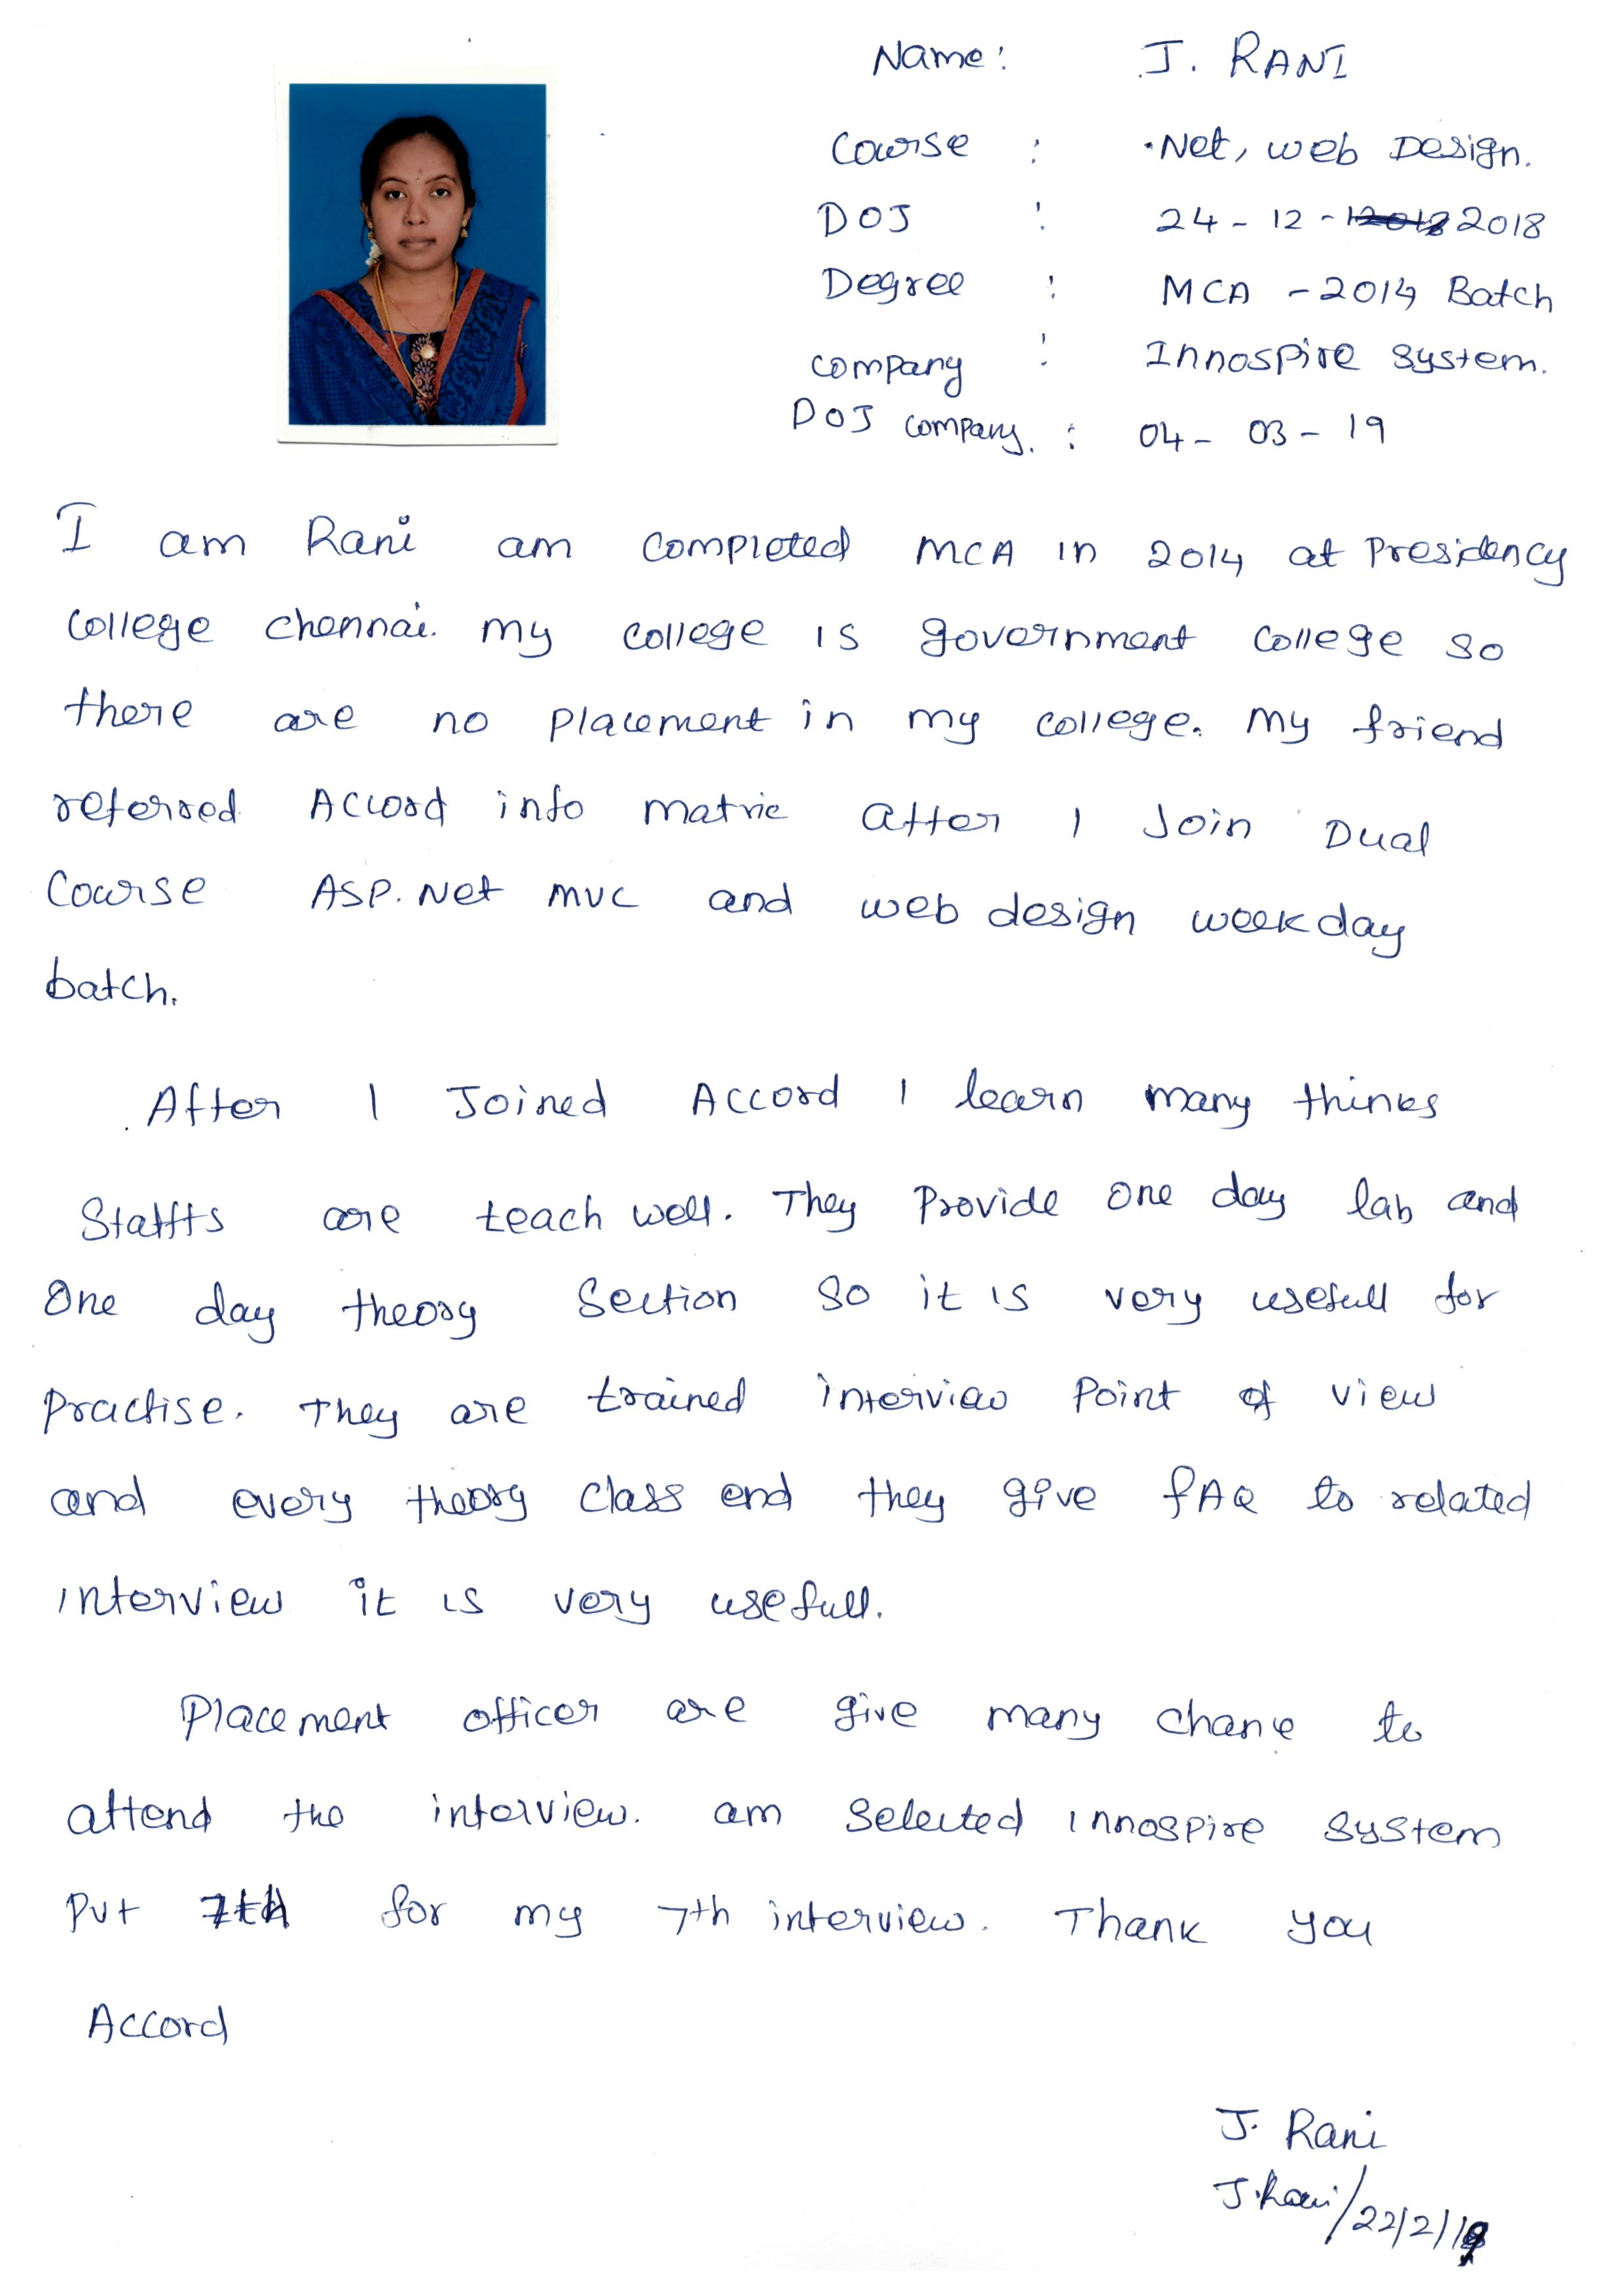 Name: J. RANI
Course : .Net, web Design.
DOJ : 24-12-2018
Degree : MCA -2014 Batch
company : Innospire system.
DOJ company. : 04-03-19
I am Rani am completed MCA in 2014 at Presidency
college chennai. my college is government college so
there are no placement in my college. my friend
referred Accord info matric after I Join Dual
Course ASP.Net MVC and web design weekday
batch.
After I Joined Accord I learn many thinks
Staffts are teach well. They Provide one day lab and
One day theory Section so it is very usefull for
Practise. They are trained interview Point of view
and every theory class end they give FAQ to related
interview it is very usefull.
Placement officer are give many chance to
attend the interview. am selected Innospire system
Put 7th for my 7th interview. Thank you
Accord
J. Rani
J.Rani/22/2/19